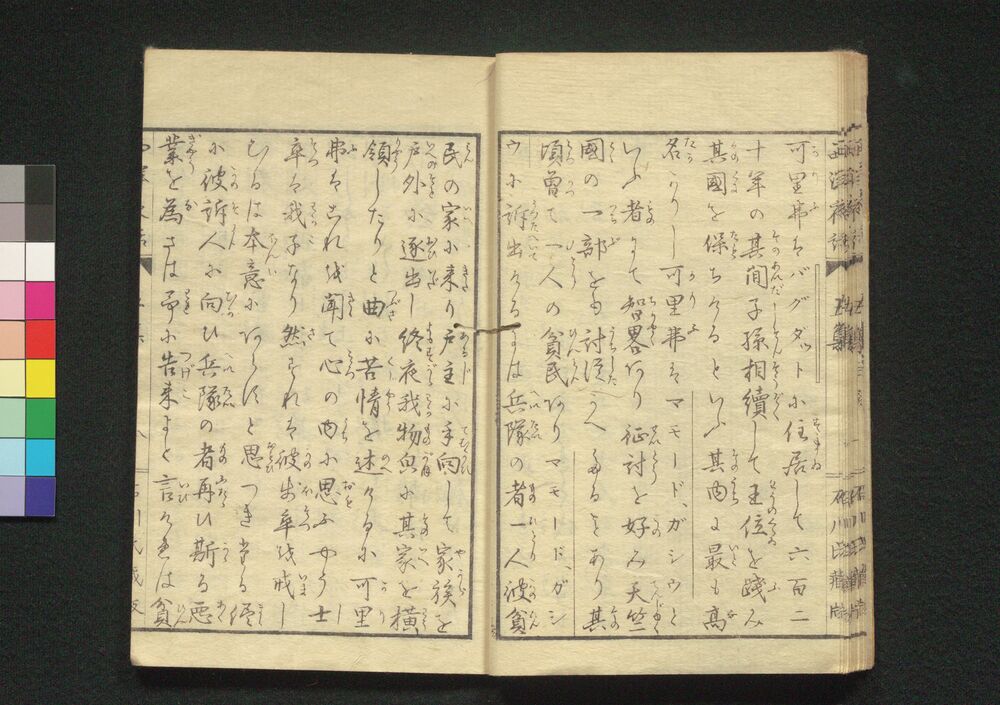 可里弗ハバグダットに住居して六百二
十年の其間子孫相續して王位を踐み
其國を保ちけるといふ其内に最も髙
名なりし可里弗ハマモードガシウと
いふ者にて智畧あり征討を好み天竺
國の一部をも討從へたることあり其
頃曽て一人の貧民ありマモードガシ
ウに訴出けるには兵隊の者一人彼貧
民の家に来り戸主に手向して家族を
戸外に逐出し終夜我物㒵に其家を横
領したりと曲に苦情を述けるに可里
弗ハこれを聞て心の内に思ふやう士
卒ハ我子なり然ればとて彼士卒を戒し
むるは本意にあらずと思つき當る儘
に彼訴人に向ひ兵隊の者再ひ斯る悪
業を為さは予に告来よと言けれは貧
西洋夜話
石川氏藏版